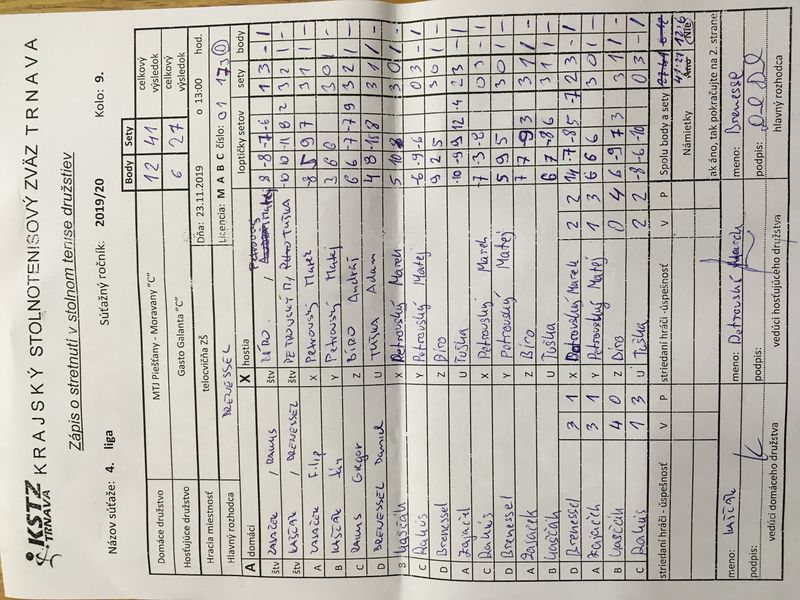 KSTZ
TRNAVA
KRAJSKÝ STOLNOTENISOVÝ ZVÄZ TRNAVA
Zápis o stretnutí v stolnom tenise družstiev
Názov súťaže: 4. liga Súťažný ročník: 2019/20 Kolo: 9.
Body Sety
Domáce družstvo MTJ Piešťany - Moravany "C" celkový výsledok 12 41
Hosťujúce družstvo Gasto Galanta "C" celkový výsledok 6 27
Hracia miestnosť telocvičňa ZŠ Dňa: 23.11.2019 o 13:00 hod.
Hlavný rozhodca DRENESSEL Licencia: M A B C číslo: 01 1730
A domáci X hostia loptičky setov sety body
štv ZAJAČEK / DAKUS štv BÍRO / Petrovský 8 -8 -7 -6 1 3 - 1
štv LAŠČÁK / DRENESSEL štv PETROVSKÝ M / TUŠKA 3 2 1 -
A ZAJAČEK Filip X Petrovský Marek -8 5 9 7 3 1 1 -
B LAŠČÁK Ján Y Petrovský Matej 3 6 6 3 0 1 -
C DAKUS Gregor Z BÍRO Andrej 6 6 7 -7 9 3 2 1 -
D DRENESSEL Daniel U TUŠKA Adam 4 8 -11 8 3 1 1 -
B Laščák X Petrovský Marek 5 10 8 3 0 1 -
C Dakus Y Petrovský Matej -6 -9 -6 0 3 - 1
D Drenessel Z Bíro 9 2 5 3 0 1 -
A Zajačik U Tuška -10 -9 9 12 -4 2 3 - 1
C Dakus X Petrovský Marek -7 -3 -8 0 3 - 1
D Drenessel Y Petrovský Matej 5 9 5 3 0 1 -
A Zajaček Z Bíro 7 7 -9 3 3 1 1 -
B Laščák U Tuška 6 7 -8 6 3 1 1 -
D Drenessel 3 1 X Petrovský Marek 2 2 14 -7 -8 5 -7 2 3 - 1
A Zajačik 3 1 Y Petrovský Matej 1 3 6 6 6 3 0 1 -
B Laščák 4 0 Z Bíro 0 4 4 6 -9 7 3 3 1 1 -
C Dakus 1 3 U Tuška 2 2 -8 -6 -10 0 3 - 1
striedaní hráči - úspešnosť V P striedaní hráči -úspešnosť V P Spolu body a sety 41:27 12:6
Námietky Áno Nie
jak áno, tak pokračujte na 2. strane
meno: Laščák meno: Petrovský Marek meno: Drenesse
podpis: podpis: podpis:
vedúci domáceho družstva vedúci hosťujúceho družstva hlavný rozhodca